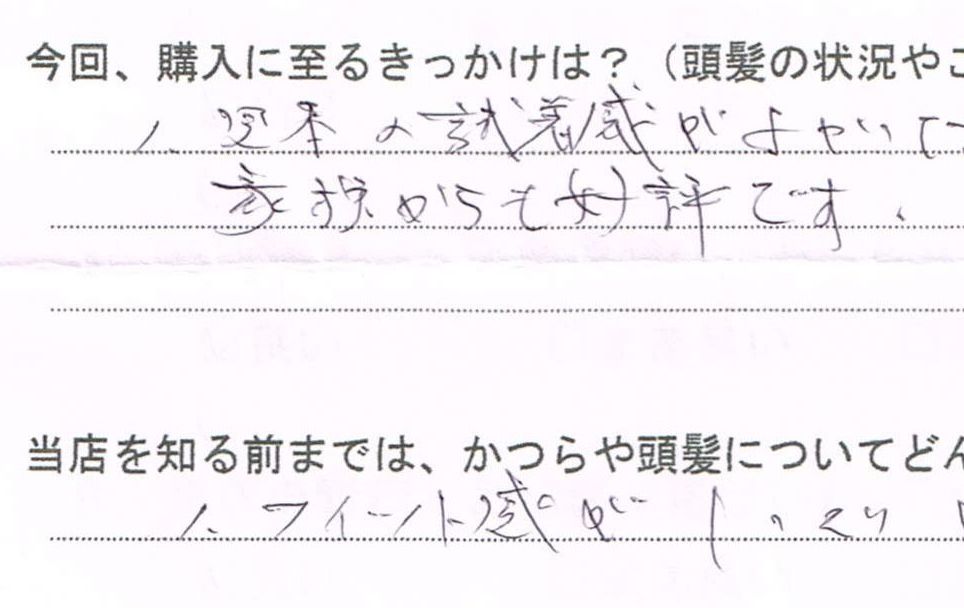 今回、購入に至るきっかけは？（頭髪の状況やこ
1. 見本の試着感がよかった
家族からも好評です.
当店を知る前までは、かつらや頭髪についてどん
1. フィット感が